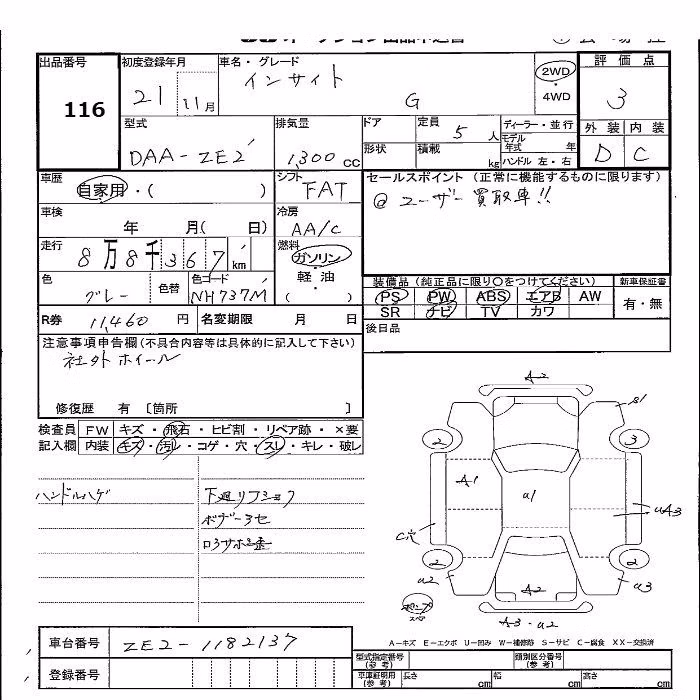 出品番号
116
初度登録年月
21 11月
車名・グレード
インサイト
G
2WD
・
4WD
評価点
3
外装 内装
D C
型式
DAA-ZE2
排気量
1,300cc
ドア
定員 5人
形状
積載 kg
ディーラー・並行
モデル年式 年
ハンドル 左・右
車歴
自家用・( )
シフト
FAT
セールスポイント (正常に機能するものに限ります)
@ユーザー買取車!!
車検
年 月( 日)
冷房
AA/C
走行
8万8千367km
燃料
ガソリン
・
軽・油
( )
色
グレー
色替
色コード
NH737M
装備品 (純正品に限り○をつけてください)
PS PW ABS エアB AW
SR ナビ TV カワ
新車保証書
有・無
R券 11,460円
名変期限 月 日
後日品
注意事項申告欄(不具合内容等は具体的に記入して下さい)
社外ホイール
修復歴 有 〔箇所 〕
検査員記入欄
FW キズ・飛石・ヒビ割・リペア跡・×要
内装 キズ・汚レ・コゲ・穴・スレ・キレ・破レ
ハンドルハゲ
下廻リフショク
ボデー3セ
ロアサポ歪
A2
S1
2
3
A1
u1
uA3
C穴
2
2
u2
A2
u3
A3・u2
A-キズ E-エクボ U-凹み W-補修跡 S-サビ C-腐食 XX-交換済
車台番号
ZE2-1182137
登録番号
型式指定番号(参考)
類別区分番号(参考)
車庫証明用(参考)
長さ cm
幅 cm
高さ cm